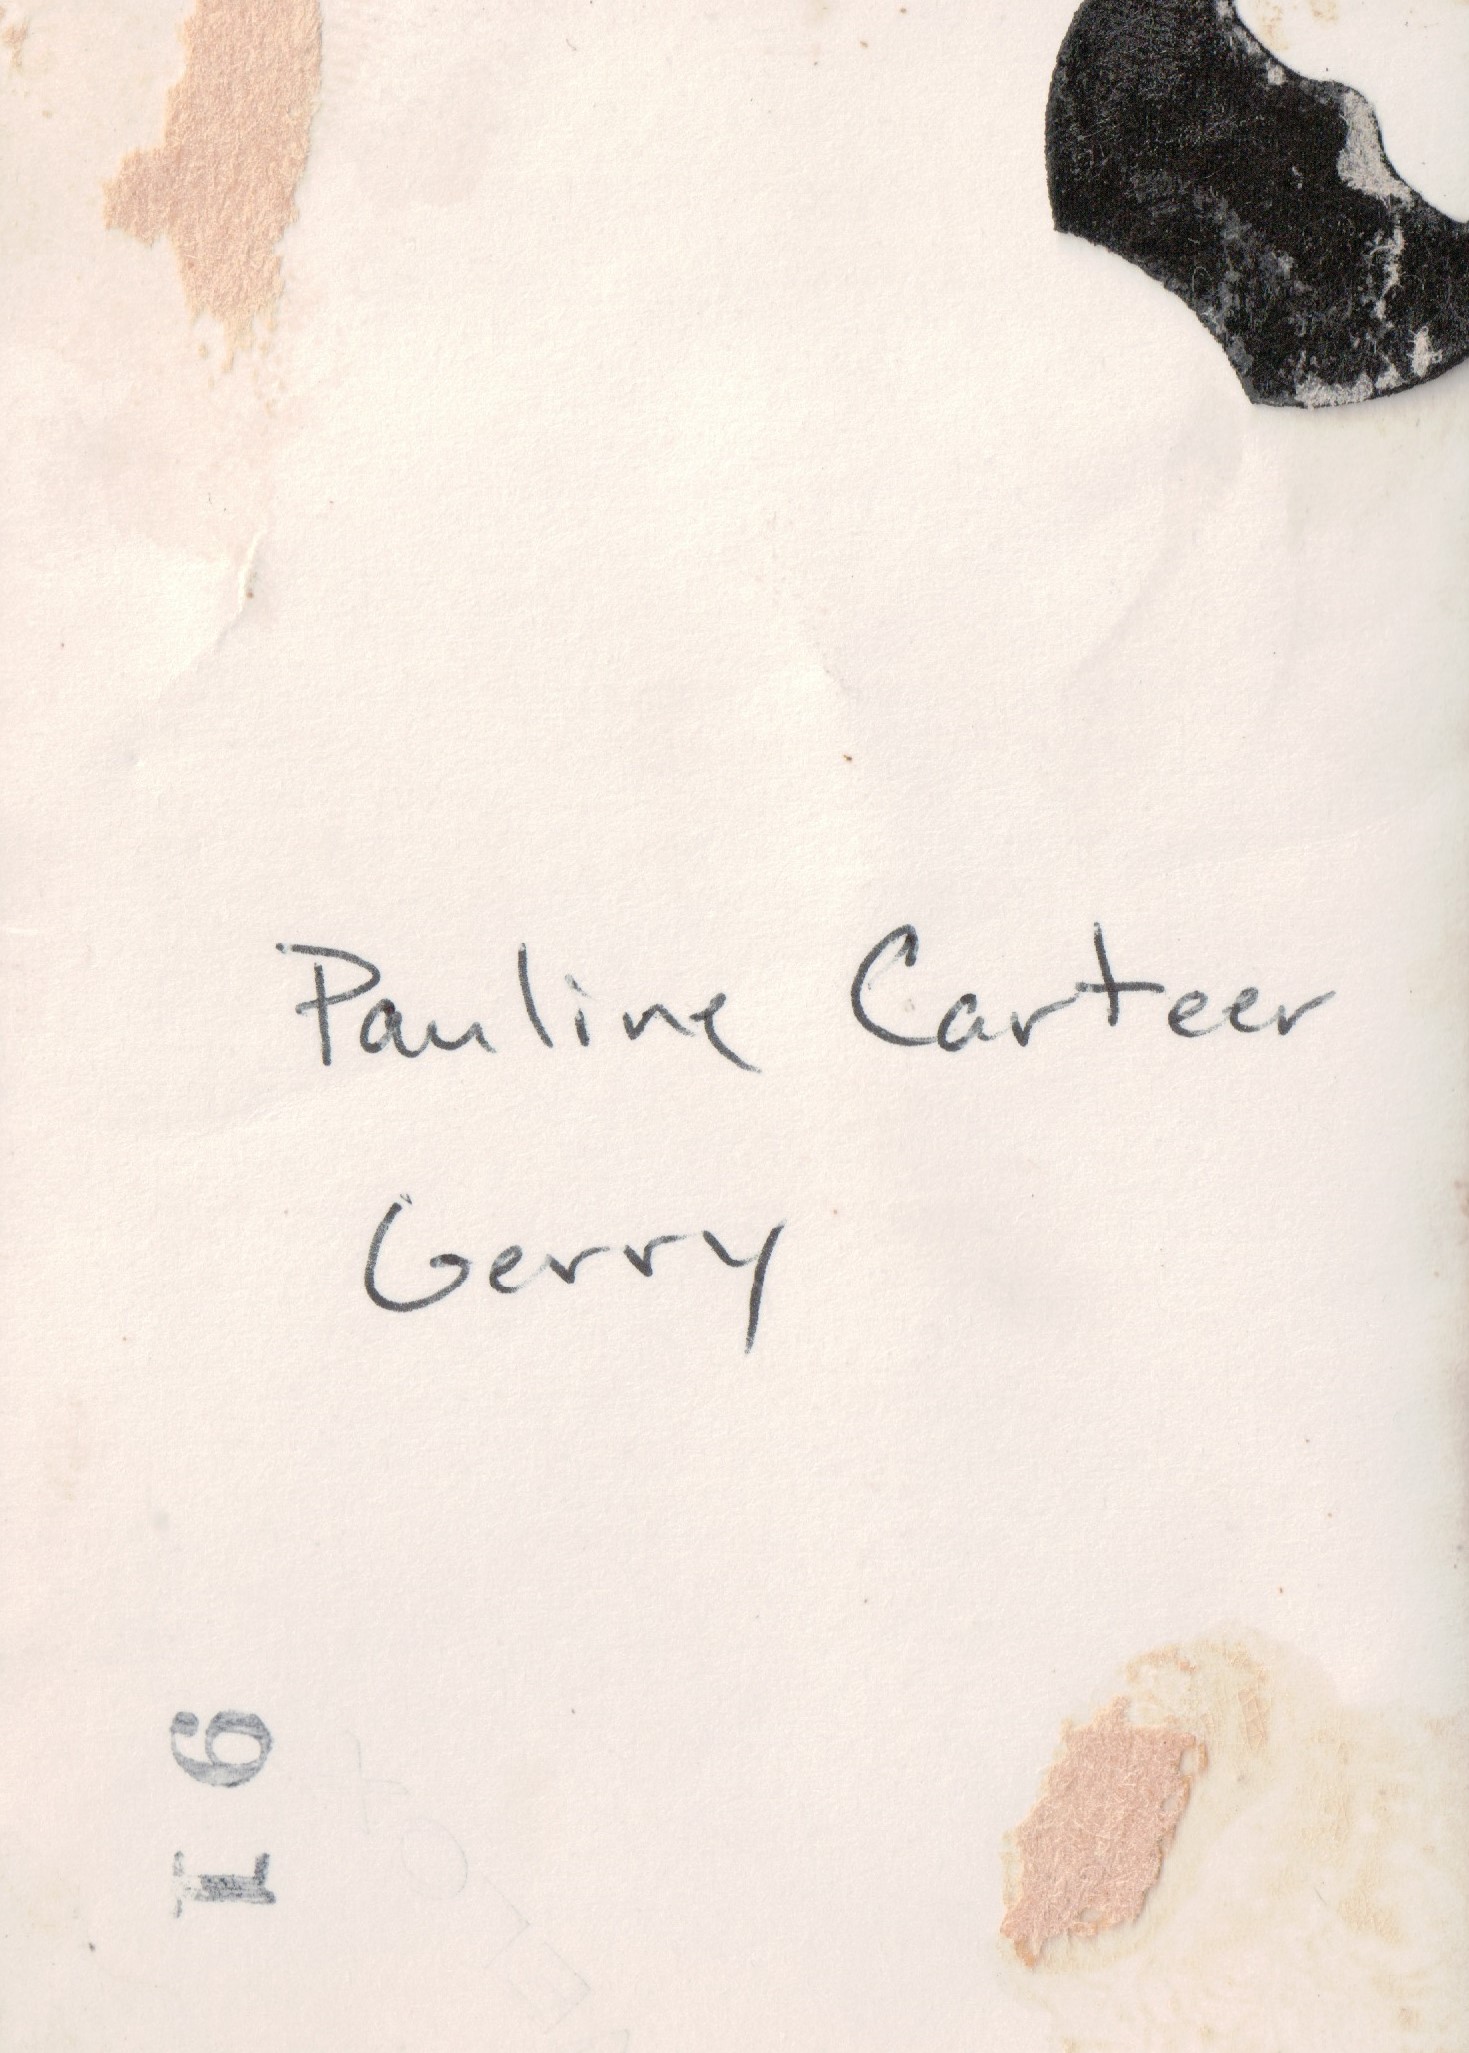 Pauline Carteer
Gerry
I 6